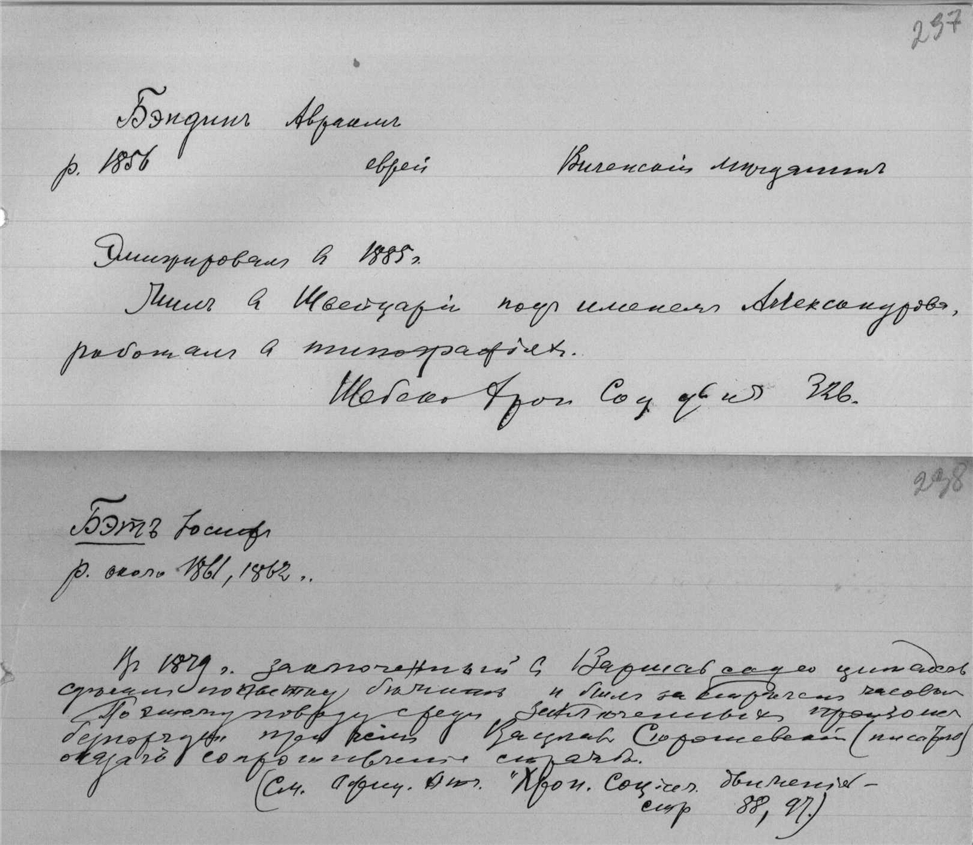 237
Бэндинъ Авраамъ
р. 1856 еврей Виленскій мѣщанинъ
Эмигрировалъ в 1885 г.
Жилъ в Швейцаріи подъ именемъ Александрова,
работалъ в типографіяхъ.
Шебеко Хрон Соц дв 326.
238
Бэтъ Іосифъ
р. около 1861, 1862 г.
Въ 1879 г. заключенный в Варшав цитадель
сдѣлалъ попытку бѣжать и былъ застрѣленъ часовым
По этому поводу среди заключенныхъ произошли
безпорядки при чемъ Вацлавъ Сѣрошевскій (писатель)
оказалъ сопротивленіе стражѣ.
(См. "Хрон. Соціал. движенія
стр 88, 97.)